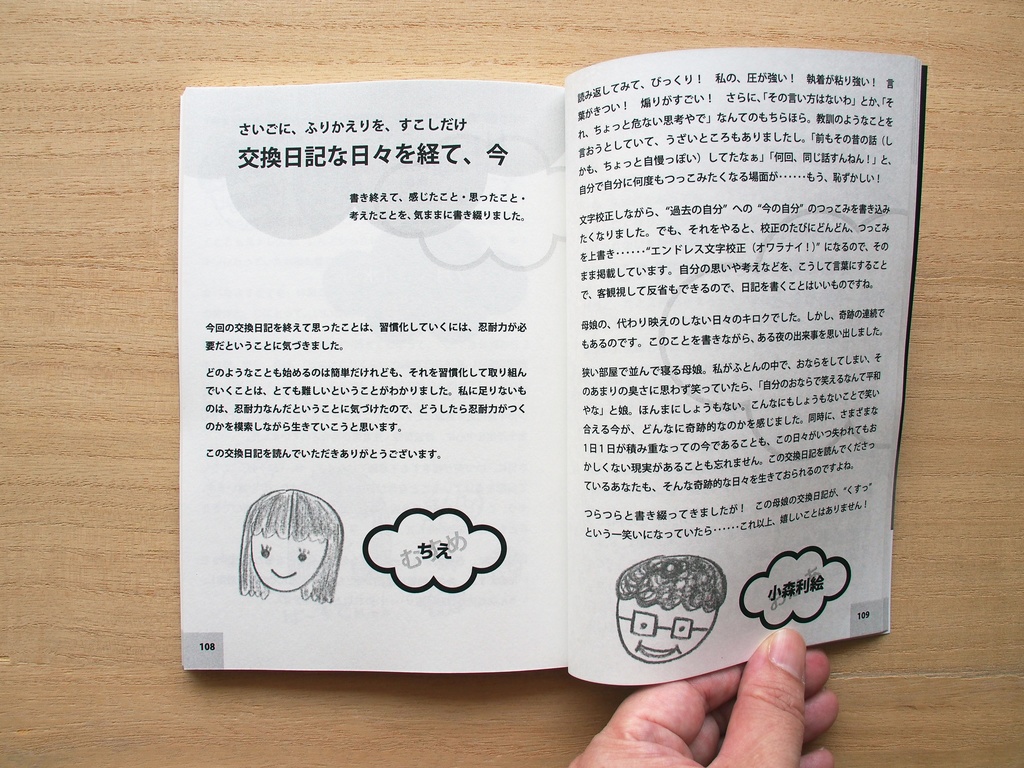 さいごに、ふりかえりを、すこしだけ
交換日記な日々を経て、今
書き終えて、感じたこと・思ったこと・
考えたことを、気ままに書き綴りました。
今回の交換日記を終えて思ったことは、習慣化していくには、忍耐力が必
要だということに気づきました。
どのようなことも始めるのは簡単だけれども、それを習慣化して取り組ん
でいくことは、とても難しいということがわかりました。私に足りないも
のは、忍耐力なんだということに気づけたので、どうしたら忍耐力がつく
のかを模索しながら生きていこうと思います。
この交換日記を読んでいただきありがとうございます。
むすめ
ちえ
108
読み返してみて、びっくり！ 私の、圧が強い！ 執着が粘り強い！ 言
葉がきつい！ 煽りがすごい！ さらに、「その言い方はないわ」とか、「そ
れ、ちょっと危ない思考やで」なんてのもちらほら。教訓のようなことを
言おうとしていて、うざいところもありましたし。「前もその昔の話（し
かも、ちょっと自慢っぽい）してたなぁ」「何回、同じ話すんねん！」と、
自分で自分に何度もつっこみたくなる場面が‥‥‥もう、恥ずかしい！
文字校正しながら、“過去の自分” への “今の自分” のつっこみを書き込み
たくなりました。でも、それをやると、校正のたびにどんどん、つっこみ
を上書き‥‥‥“エンドレス文字校正（オワラナイ！）” になるので、その
まま掲載しています。自分の思いや考えなどを、こうして言葉にすること
で、客観視して反省もできるので、日記を書くことはいいものですね。
母娘の、代わり映えのしない日々のキロクでした。しかし、奇跡の連続で
もあるのです。このことを書きながら、ある夜の出来事を思い出しました。
狭い部屋で並んで寝る母娘。私がふとんの中で、おならをしてしまい、そ
のあまりの臭さに思わず笑っていたら、「自分のおならで笑えるなんて平和
やな」と娘。ほんまにしょうもない。こんなにもしょうもないことで笑い
合える今が、どんなに奇跡的なのかを感じました。同時に、さまざまな
1日1日が積み重なっての今であることも、この日々がいつ失われてもお
かしくない現実があることも忘れません。この交換日記を読んでくださっ
ているあなたも、そんな奇跡的な日々を生きておられるのですよね。
つらつらと書き綴ってきましたが！ この母娘の交換日記が、“くすっ”
という一笑いになっていたら‥‥‥これ以上、嬉しいことはありません！
小森利絵
109